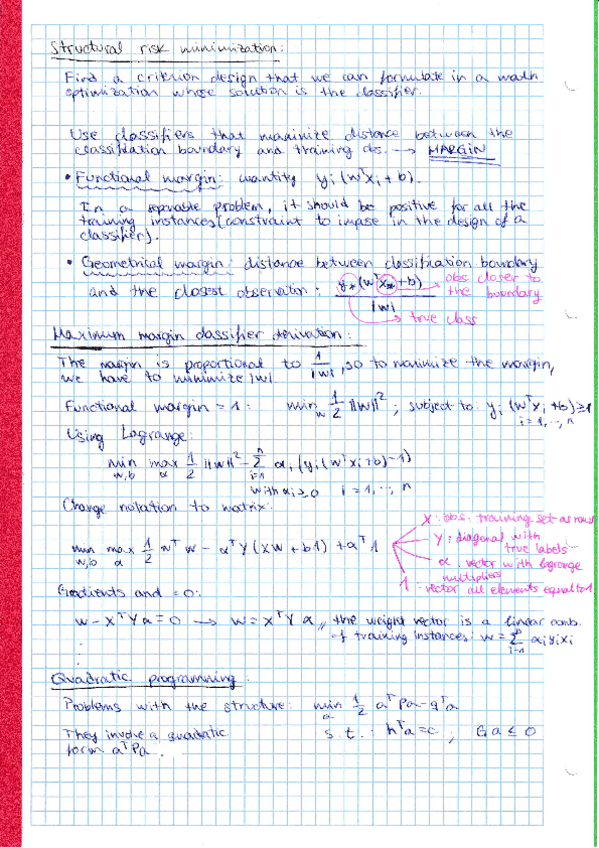 Structural risk minimization:
Find a criterion design that we can formulate in a math
optimization whose solution is the classifier.
Use classifiers that maximize distance between the
classification boundary and training obs. → MARGIN
• Functional margin: quantity yᵢ(wᵀxᵢ + b).
In a separable problem, it should be positive for all the
training instances (constraint to impose in the design of a
classifier).
• Geometrical margin: distance between classification boundary
and the closest observation: y*(wᵀx* + b) / |w| → obs. closer to
the boundary
→ true class
Maximum margin classifier derivation:
The margin is proportional to 1/|w|, so to maximize the margin,
we have to minimize |w|.
Functional margin = 1: min_w 1/2 ||w||²; subject to: yᵢ(wᵀxᵢ + b) ≥ 1
i = 1, .., n
Using Lagrange:
min_{w,b} max_α 1/2 ||w||² - Σ_{i=1}^{n} αᵢ(yᵢ(wᵀxᵢ + b) - 1)
with αᵢ ≥ 0 i = 1, .., n
Change notation to matrix:
X: obs. training set as rows
Y: diagonal with
true labels
α: vector with lagrange
multipliers
1: vector all elements equal to 1
min_{w,b} max_α 1/2 wᵀw - αᵀY(Xw + b1) + αᵀ1
Gradients and = 0:
w - XᵀYα = 0 → w = XᵀYα // the weight vector is a linear comb.
of training instances: w = Σ_{i=1}^{n} αᵢyᵢxᵢ
:
:
Quadratic programming:
Problems with the structure: min_a 1/2 aᵀPa - qᵀa
They involve a quadratic s.t.: hᵀa = c; Ga ≤ 0
form aᵀPa.